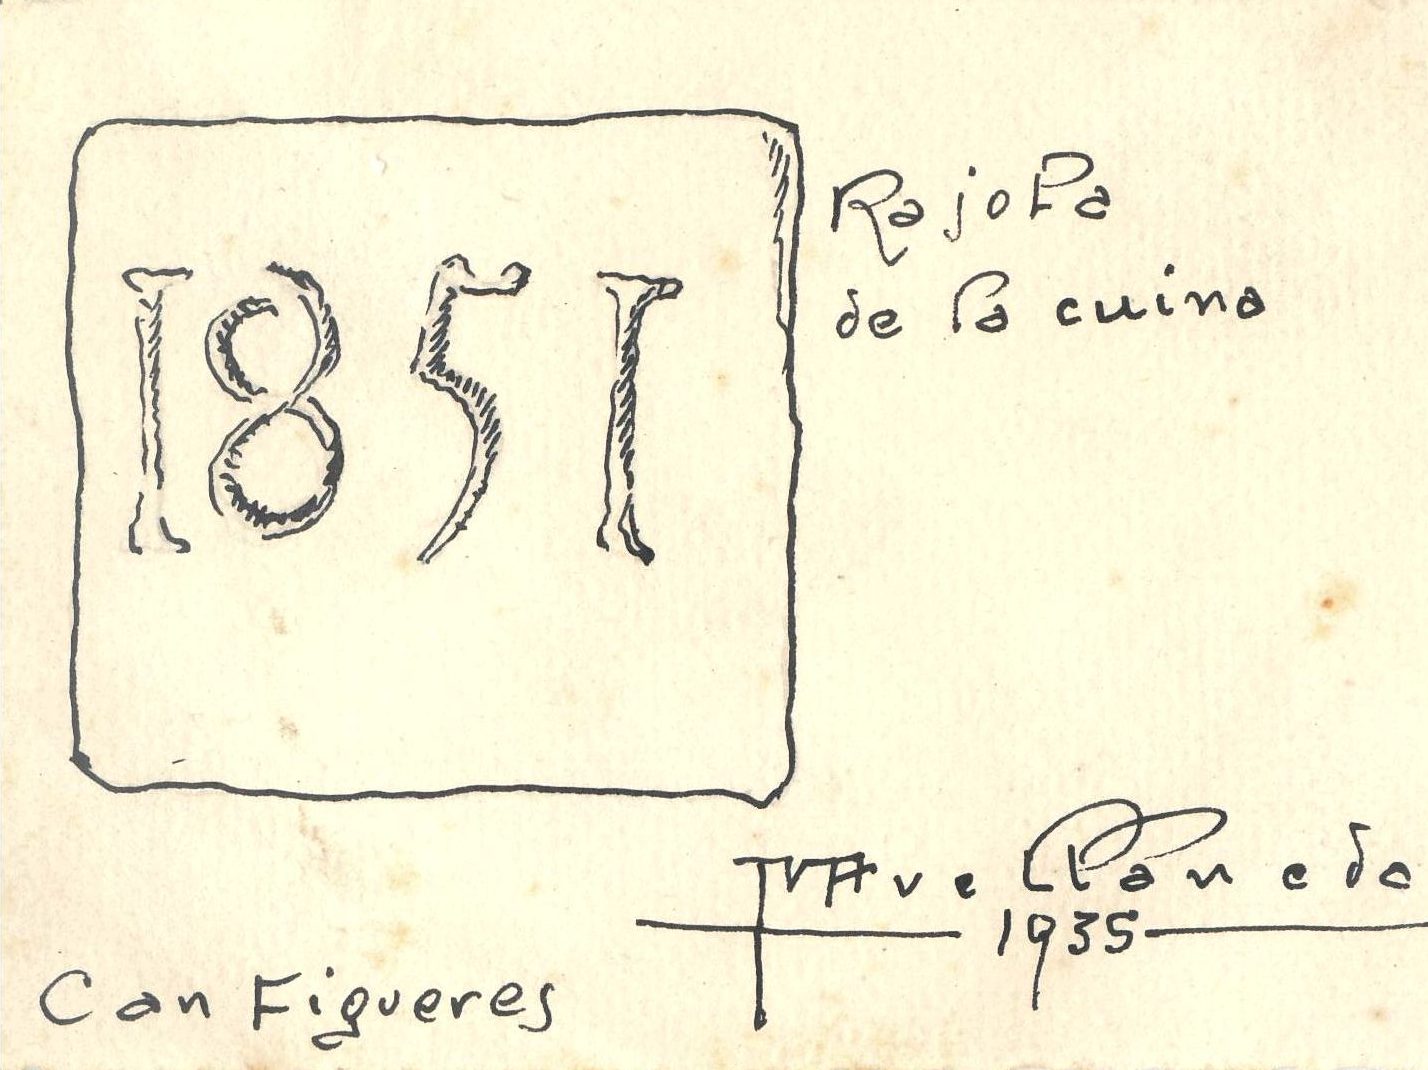 1851
Rajola
de la cuina
Llaneda
1935
Can Figueres